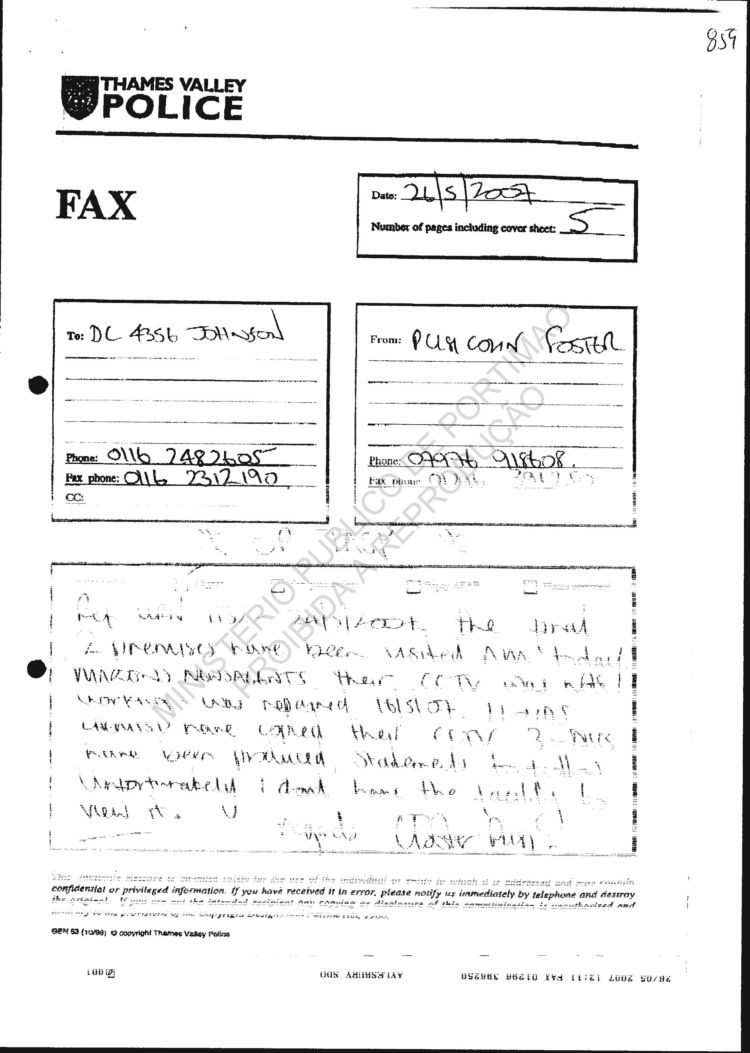 859
THAMES VALLEY
POLICE
FAX
Date: 26/5/2007
Number of pages including cover sheet: 5
To: DC 4356 JOHNSON
Phone: 0116 2482605
Fax phone: 0116 2312190
CC:
From: FOSTER
Phone: 07976 918608
Fax phone:
MINISTÉRIO PÚBLICO DE PORTIMÃO
PROIBIDA A REPRODUÇÃO
Ref 24/5/2007 the
2 premises have been visited AM today
NEWSAGENTS their CCTV was not
working was repaired 16/5/07.
have copied their CCTV 3
have been produced Statements to follow
Unfortunately i dont have the facility to
view it.
regards
This facsimile message is intended solely for the use of the individual or entity to which it is addressed and may contain
confidential or privileged information. If you have received it in error, please notify us immediately by telephone and destroy
the original. If you are not the intended recipient any copying or disclosure of this communication is unauthorised and
contrary to the provisions of the Copyright Designs and Patents Act, 1988.
GEN 53 (10/98) © copyright Thames Valley Police
26/05 2007 12:11 FAX 01296 396250 AYLESBURY SDO 001